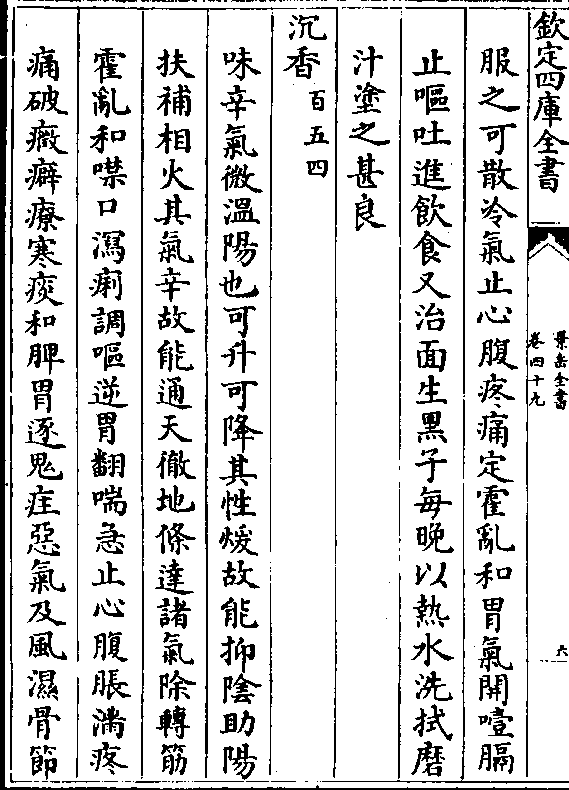 欽定四庫全書
景岳全書
卷四十九
六
服之可散冷氣止心腹疼痛定霍亂和胃氣開噎膈
止嘔吐進飲食又治面生黑子每晚以熱水洗拭磨
汁塗之甚良
沉香百五四
味辛氣微溫陽也可升可降其性煖故能抑陰助陽
扶補相火其氣辛故能通天徹地條達諸氣除轉筋
霍亂和噤口瀉痢調嘔逆胃翻喘急止心腹脹滿疼
痛破癥癖療寒痰和脾胃逐鬼疰惡氣及風濕骨節